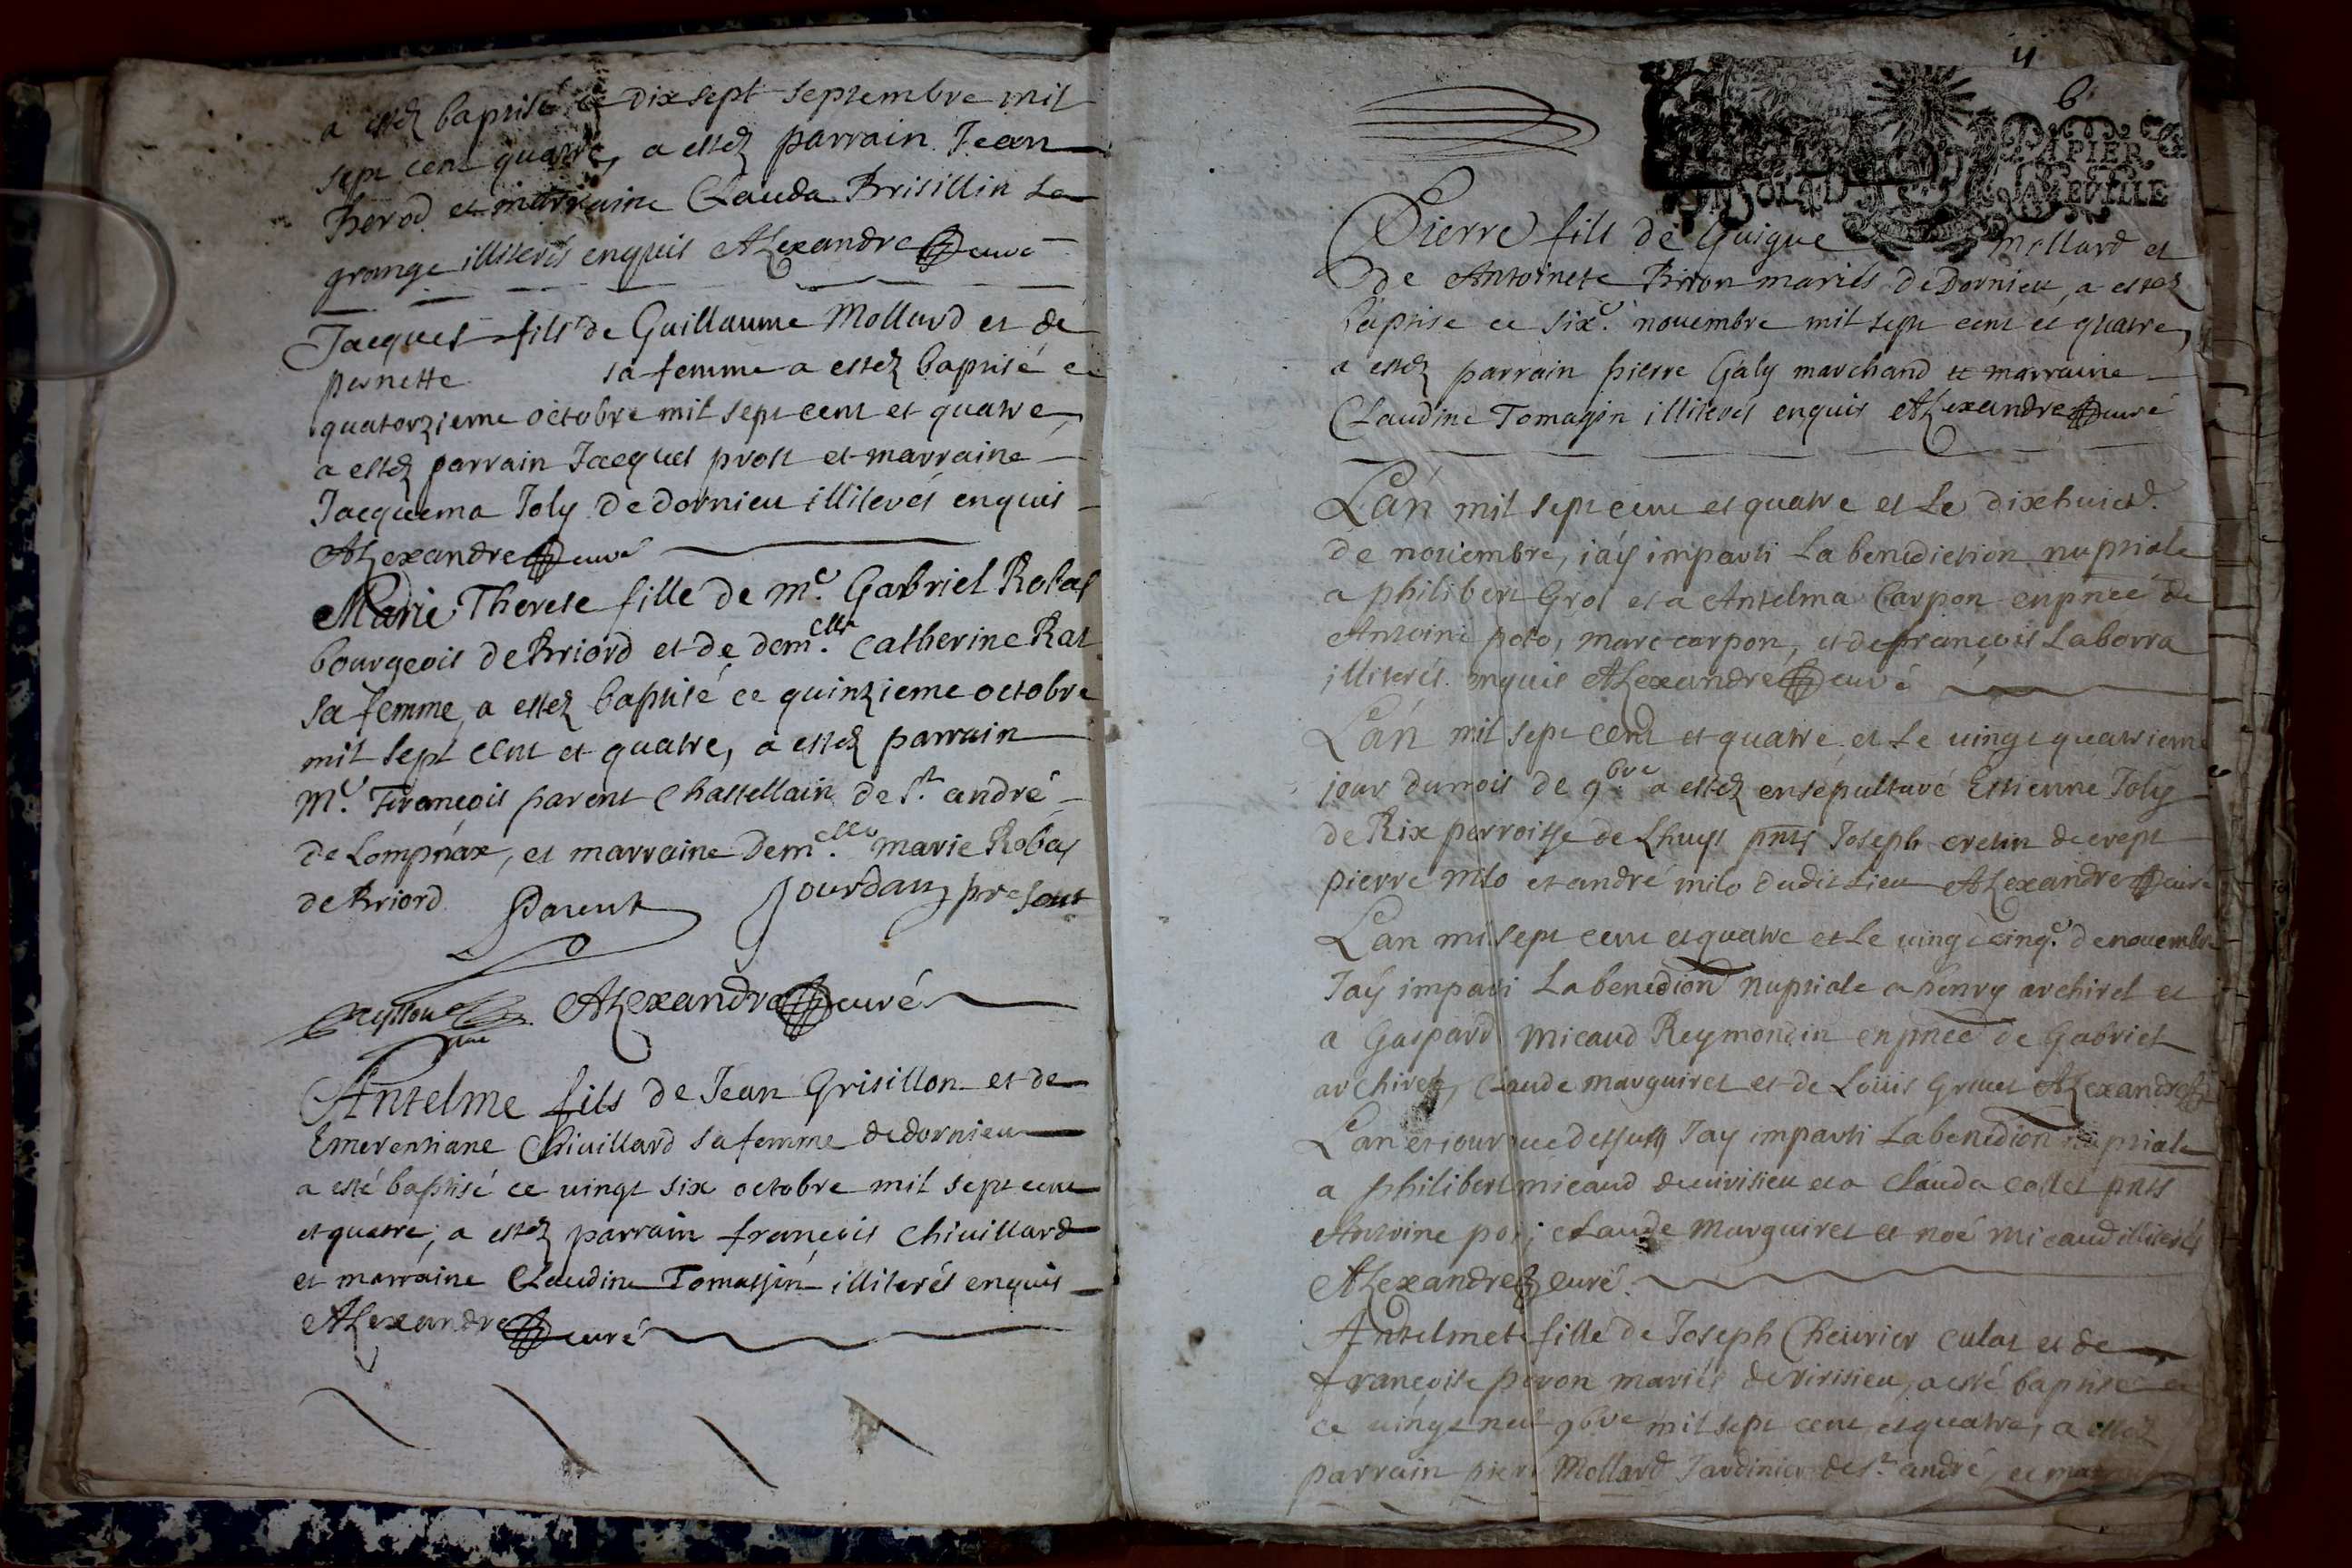 a estez baptisé ce dix sept septembre mil
sept cent quatre, a estez parrain Jean
Herod et marraine Clauda Brisillin La
grange illiterés enquis Alexandre curé
Jacques fils de Guillaume Mollard et de
pernette sa femme a estez baptisé ce
quatorzieme octobre mil sept cent et quatre,
a estez parrain Jacques prost et marraine
Jacquema Joly de dornieu illiterés enquis
Alexandre curé
Marie Therese fille de mᵉ. Gabriel Robas
bourgeois de Briord et de demˡˡᵉ. Catherine Rat
sa femme, a estez baptisé ce quinzieme octobre
mil sept cent et quatre, a estez parrain
Mᵉ. François parent Chastellain de Sᵗ. andré
de Lompnax, et marraine Demˡˡᵉ. marie Robas
de Briord Parent Jourdan present
Alexandre curé
Antelme fils de Jean Grisillon et de
Emerentiane Chivillard sa femme de dornieu
a esté baptisé ce vingt six octobre mil sept cent
et quatre, a estez parrain françois Chivillard
et marraine Claudine Tomassin illiterés enquis
Alexandre curé
6
PAPIER
Pierre fils de Guigue Mollard et
de Antoinete Biron mariés de Dornieu, a estez
baptise ce sixᵉ. novembre mil sept cent et quatre,
a estez parrain pierre Galy marchand et marraine
Claudine Tomasin illiterés enquis Alexandre curé
Lan mil sept cent et quatre et le dixhuict.
de novembre, iay imparti La benediction nuptiale
a philibert Gros et a Antelma Carpon enpñce de
Antoine poto, marc carpon, et de françois Laborra
illiterés enquis Alexandre curé
Lan mil sept cent et quatre et le vingt quatrieme
jour dumois de 9bre a estez ensépulturé Estienne Joly
de Rix parroisse de Lhuys pñts Joseph cretin de crept
pierre milo et andré milo dudit Lieu Alexandre curé
Lan mil sept cent et quatre et Le vingt cinqᵉ. de novembre
Jay imparti La benedion nuptiale a henry archiret et
a Gaspard Micaud Reymondin enpñce de Gabriel
archiret, Claude marguiret et de Loüis Gruet Alexandre
Lan et jour que dessus Jay imparti La benedion nuptiale
a philibert micaud et a Clauda collet pñts
Antoine Claude Marguiret et noé micaud illiterés
Alexandre curé.
Antelmete fille de Joseph Cheivrier culat et de
françoise peron mariés de a esté baptisé
ce vingt neuf 9bre mil sept cent et quatre, a estez
parrain pierre Mollard Jardinier de Sᵗ. andré, et